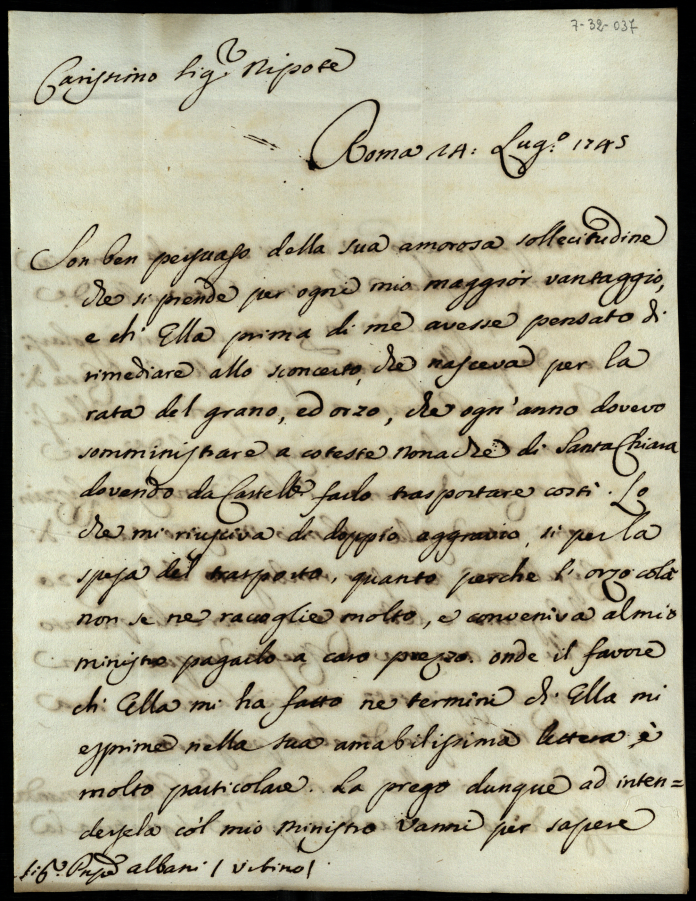 7-32-037
Carissimo Sig.r Nipote
Roma 14: Lug.o 1745
Son ben persuaso della sua amorosa sollecitudine
che si prende per ogni mio maggior vantaggio,
e ch'Ella prima di me avesse pensato di
rimediare allo sconcerto, che nasceva per la
rata del grano, ed orzo, che ogn'anno dovevo
somministrare a coteste monache di Santa Chiara
dovendo da Castell.o farlo trasportare costì. Lo
che mi riusciva di doppio aggravio, si per la
spesa del trasporto, quanto perche l'orzo colà
non se ne raccoglie molto, e conveniva al mio
ministro pagarlo a caro prezzo. onde il favore
ch'Ella mi ha fatto ne termini ch'Ella mi
esprime nella sua amabilissima lettera, è
molto particolare. La prego dunque ad inten=
dersela col mio Ministro Vanni per sapere
Sig.r Prnpe Albani / Urbino /